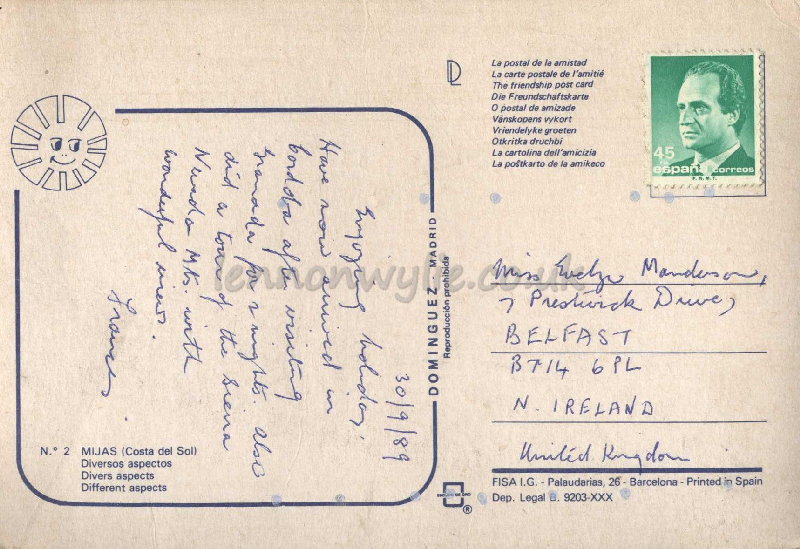 La postal de la amistad
La carte postale de l'amitié
The friendship post card
Die Freundschaftskarte
O postal de amizade
Vänskopens vykort
Vriendelyke groeten
Otkritka druchbi
La cartolina dell'amicizia
La poŝtkarto de la amikeco
45
españa correos
F.N.M.T.
30/9/89
Enjoying holiday.
Have now arrived in
Cordoba after visiting
Granada for 2 nights. Also
did a tour of the Sierra
Nevada Mts. with
wonderful views.
Frances
DOMINGUEZ - MADRID
Reproducción prohibida
Miss Evelyn Manderson,
7 Prestwick Drive,
BELFAST
BT14 6PL
N. IRELAND
United Kingdom
lennonwylie.co.uk
N.° 2 MIJAS (Costa del Sol)
Diversos aspectos
Divers aspects
Different aspects
FISA I.G. - Palaudarias, 26 - Barcelona - Printed in Spain
Dep. Legal B. 9203-XXX
ESCUDO DE ORO
®